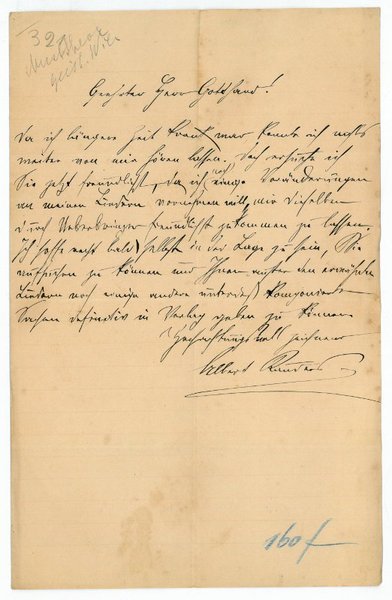 32
Musikverlag
Wien
Geehrter Herr Gotthard!
Da ich längere Zeit krank war konnte ich nichts
weiter von mir hören lassen. Doch ersuche ich
Sie jetzt freundlichst, da ich noch einige Veränderungen
an meinen Liedern vornehmen will, mir dieselben
durch Ueberbringer freundlichst zukommen zu lassen.
Ich hoffe recht bald selbst in der Lage zu sein, Sie
aufsuchen zu können und Ihnen außer den erwähnten
Liedern noch einige andere unterdeß komponierte
Sachen definitiv in Verlag geben zu können
Hochachtungsvoll zeichnend
Albert
160f